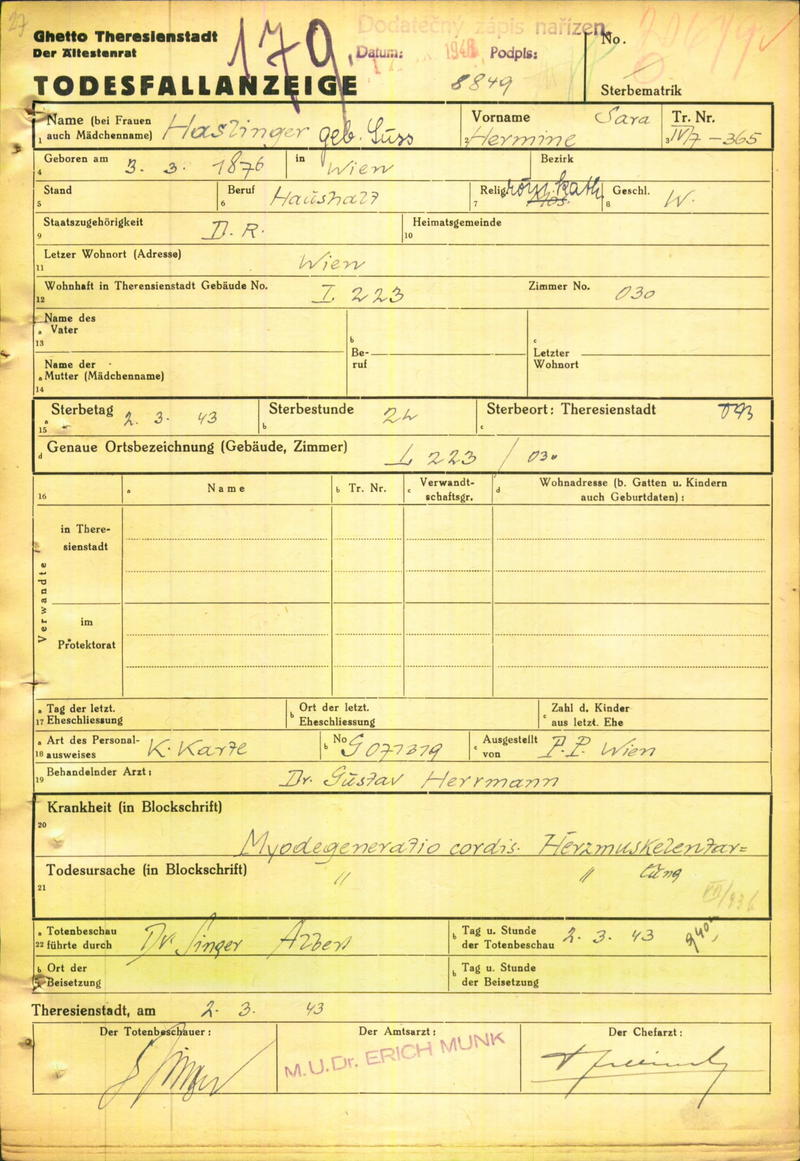 Dodatečný zápis nařízen
Ghetto Theresienstadt
Der Ältestenrat
170
Datum: Podpis:
No.
TODESFALLANZEIGE
8849
Sterbematrik
Name (bei Frauen auch Mädchenname) Haslinger geb. Süss
Vorname Sara Hermine
Tr. Nr. IV/7 - 365
1 2 3
Geboren am 3. 3. 1876 in Wien Bezirk
4
Stand Beruf Haushalt Relig. röm. kath. Mos. Geschl. W.
5 6 7 8
Staatszugehörigkeit D. R. Heimatsgemeinde
9 10
Letzer Wohnort (Adresse) Wien
11
Wohnhaft in Therensienstadt Gebäude No. L 223 Zimmer No. 030
12
Name des
a Vater
13
Name der
a Mutter (Mädchenname)
14
b Be-
ruf
c Letzter
Wohnort
Sterbetag 2. 3. 43 Sterbestunde 2h Sterbeort: Theresienstadt
15 a b c
d Genaue Ortsbezeichnung (Gebäude, Zimmer) L 223 / 030
16 a Name b Tr. Nr. c Verwandt-
schaftsgr. d Wohnadresse (b. Gatten u. Kindern
auch Geburtdaten) :
Verwandte
in There-
sienstadt
im
Protektorat
a Tag der letzt.
17 Eheschliessung
b Ort der letzt.
Eheschliessung
c Zahl d. Kinder
aus letzt. Ehe
a Art des Personal-
18 ausweises K. Karte
b No G 071319
c Ausgestellt
von P.P. Wien
19 Behandelnder Arzt: Dr. Gustav Herrmann
Krankheit (in Blockschrift)
20
Myodegeneratio cordis. Herzmuskelentar=
Todesursache (in Blockschrift) " " tung
21
a Totenbeschau
22 führte durch Dr. Singer Albert
b Tag u. Stunde
der Totenbeschau 2. 3. 43
b Ort der
Beisetzung
b Tag u. Stunde
der Beisetzung
Theresienstadt, am 2. 3. 43
Der Totenbeschauer : Der Amtsarzt : Der Chefarzt :
M.U.Dr. ERICH MUNK